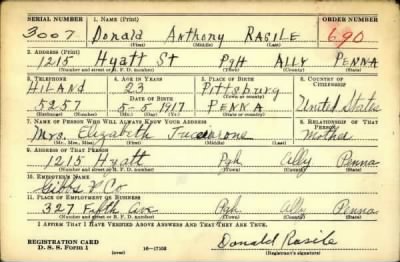 SERIAL NUMBER 1. NAME (Print) ORDER NUMBER
3007 Donald Anthony RASILE 690
(First) (Middle) (Last)
2. ADDRESS (Print)
1215 Hyatt St PgH ALLY PENNA
(Number and street or R. F. D. number) (Town) (County) (State)
3. TELEPHONE 4. AGE IN YEARS 5. PLACE OF BIRTH 6. COUNTRY OF CITIZENSHIP
HiLAND 23 Pittsburg
DATE OF BIRTH
5257 5-5-1917 PENNA United States
(Exchange) (Number) (Mo.) (Day) (Yr.) (Town or county) (State or country)
7. NAME OF PERSON WHO WILL ALWAYS KNOW YOUR ADDRESS 8. RELATIONSHIP OF THAT PERSON
Mrs. Elizabeth Mother
(Mr., Mrs., Miss) (First) (Middle) (Last)
9. ADDRESS OF THAT PERSON
1215 Hyatt Pgh Ally Penna
(Number and street or R. F. D. number) (Town) (County) (State)
10. EMPLOYER'S NAME
Gibbs & Co
11. PLACE OF EMPLOYMENT OR BUSINESS
327 Fifth Ave Pgh Ally Penna
(Number and street or R. F. D. number) (Town) (County) (State)
I AFFIRM THAT I HAVE VERIFIED ABOVE ANSWERS AND THAT THEY ARE TRUE.
REGISTRATION CARD
D. S. S. Form 1 (over) 16—17105 Donald Rasile
(Registrant's signature)